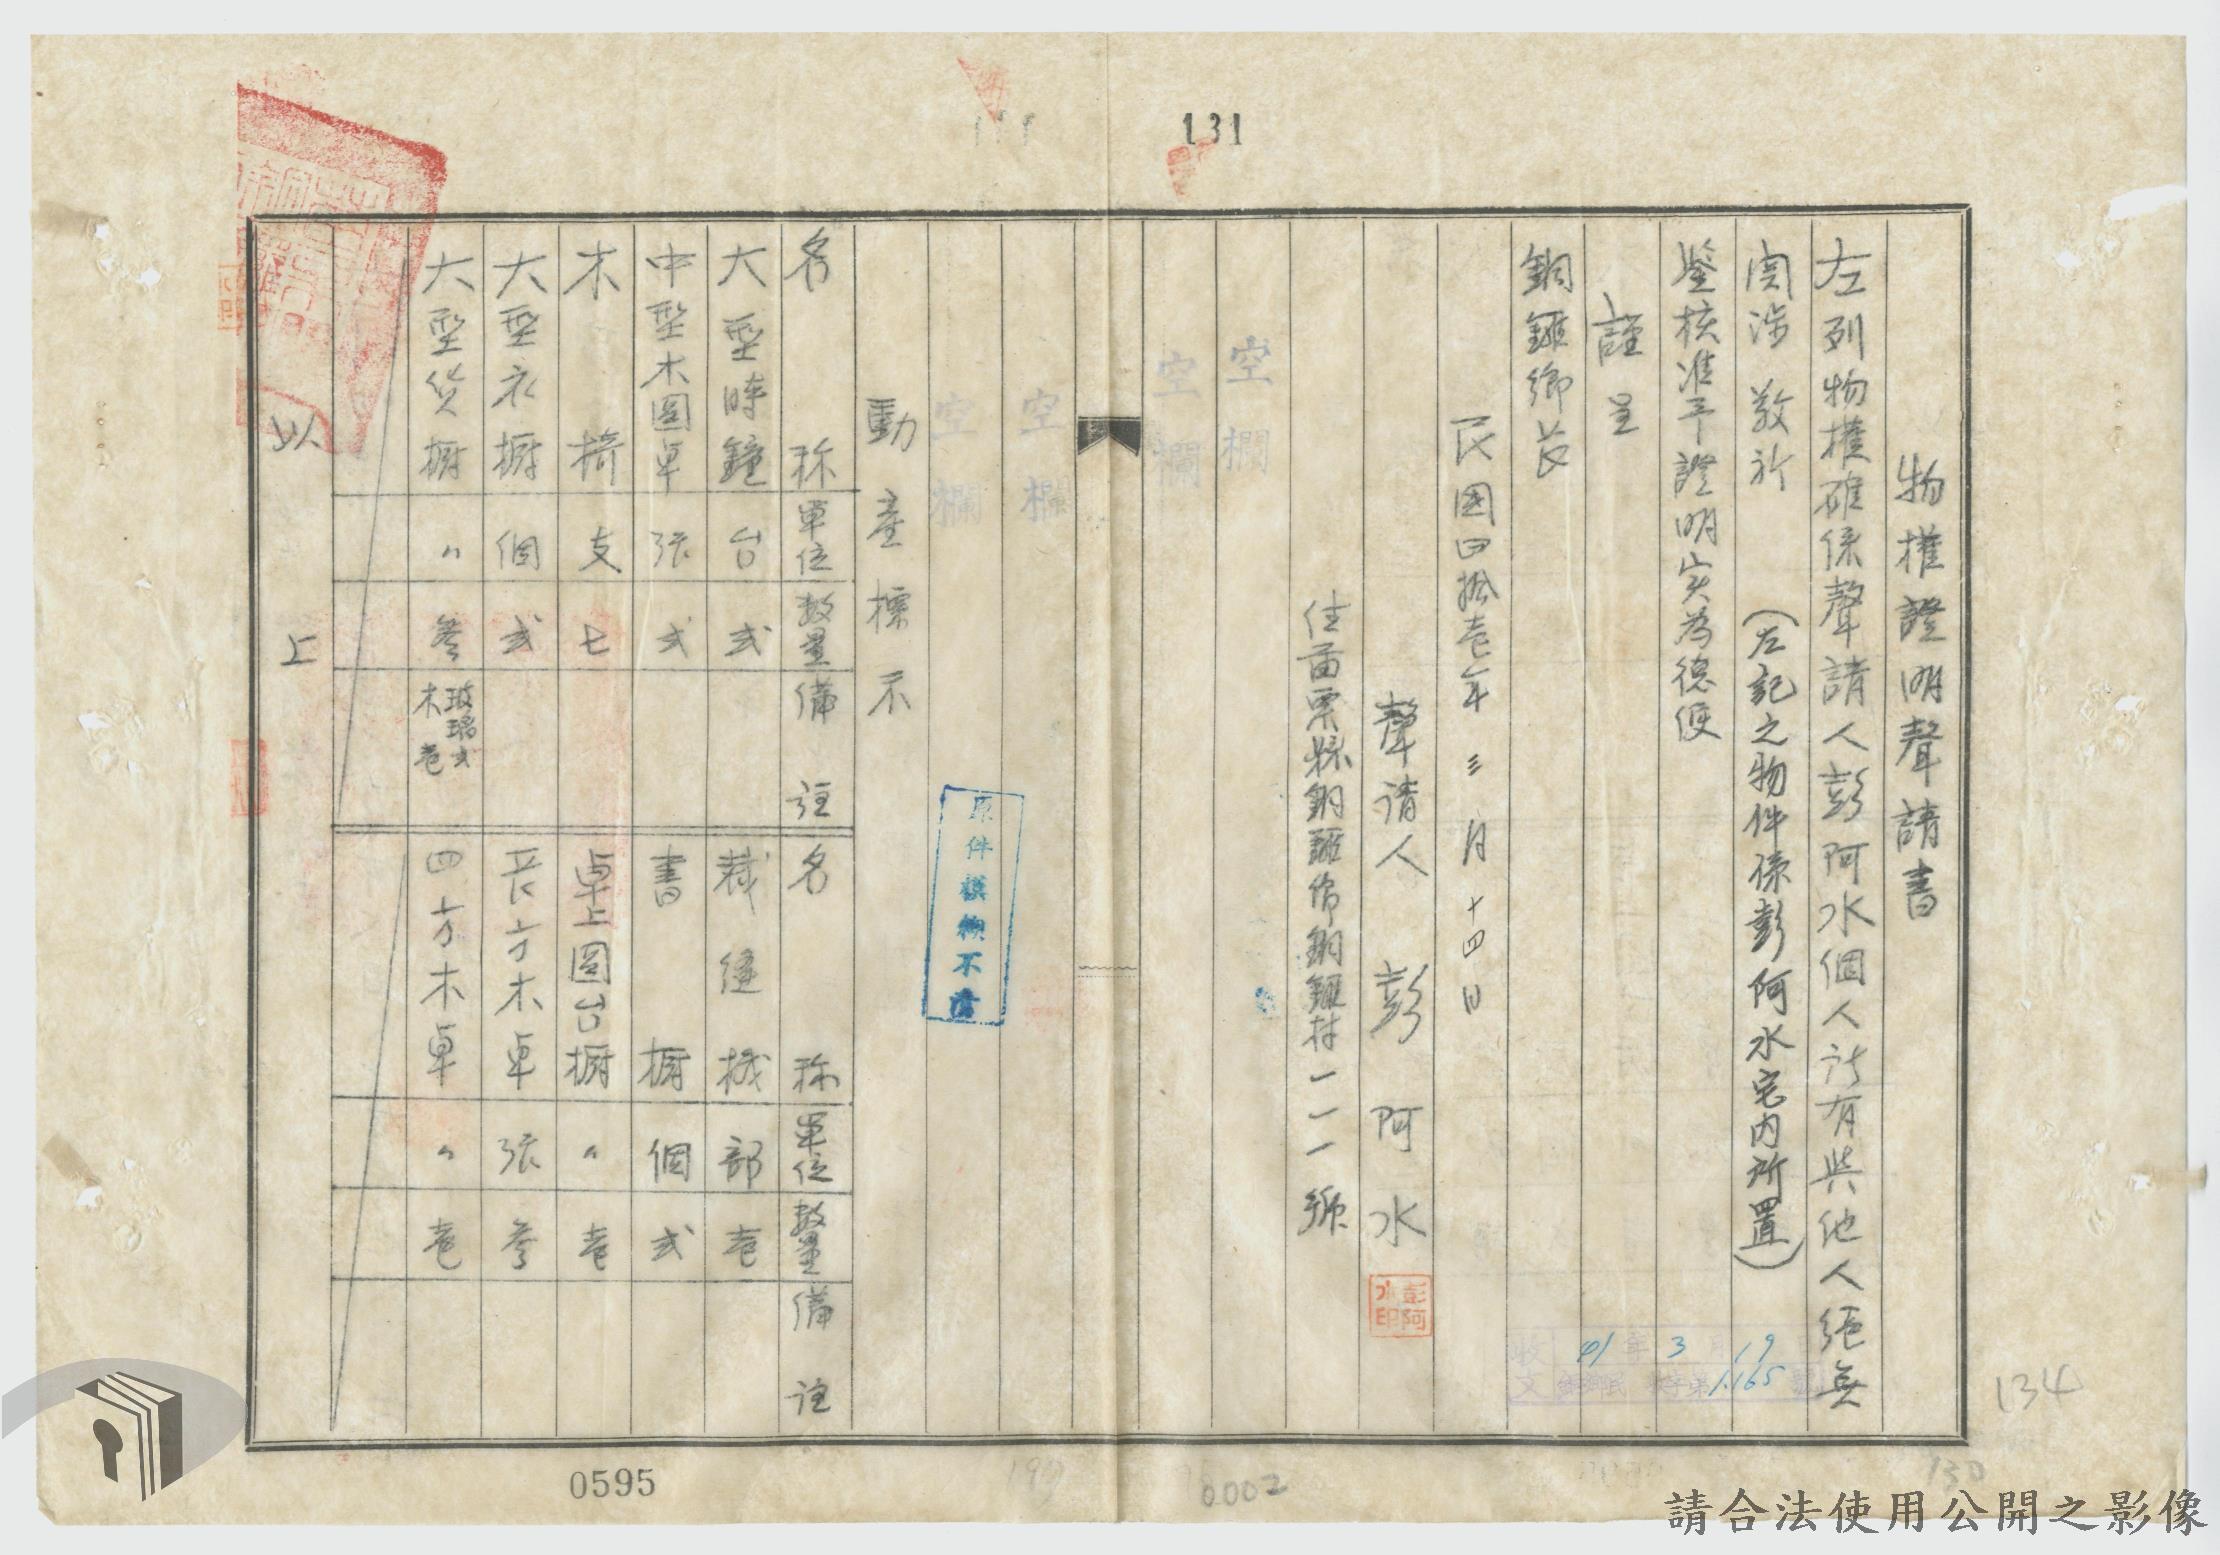 131
物權證明聲請書
左列物權確係聲請人彭阿水個人所有與他人絕無
関涉 敬祈 (左記之物件係彭阿水宅內所置)
鑒核准予證明实為德便
謹呈
銅鑼鄉長
民國四拾壱年三月十四日
聲请人 彭阿水
彭阿水印
住苗栗縣銅鑼鄉銅鑼村一一一號
空欄
空欄
空欄
空欄
原件模糊不清
動產標示
名称 單位 数量 備註
大型時鐘 台 弍
中型木圓卓 張 弍
木椅 支 七
大型衣櫥 個 弍
大型货櫥 〃 参 玻璃弍 木壱
名称 單位 数量 備註
裁縫机 部 壱
書櫥 個 弍
卓上圓台櫥 〃 壱
長方木卓 張 参
四方木卓 〃 壱
以上
收文 41年3月19日
字第1165號
134
130
0002
0595
請合法使用公開之影像